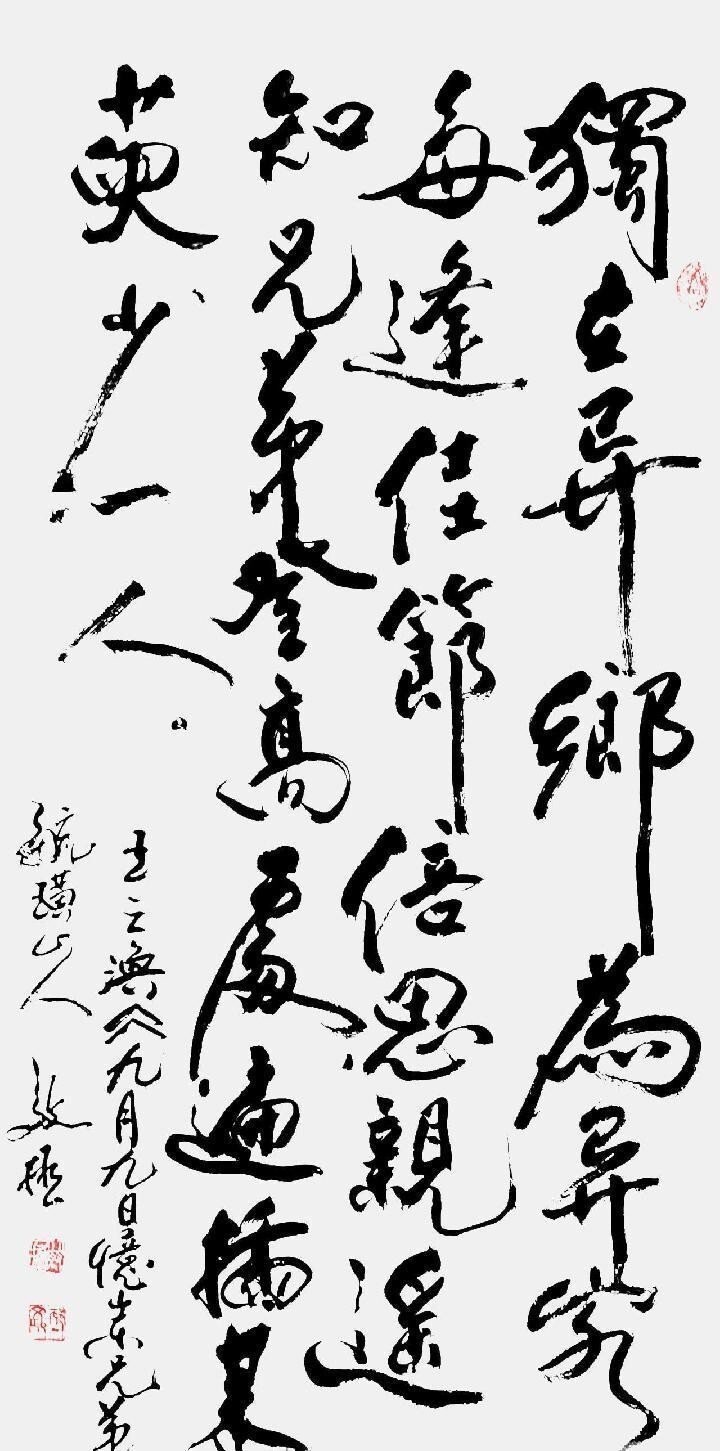 獨在异鄉為异客
每逢佳節倍思親遙
知兄弟登高處遍插茱
萸少一人。
王之渙 九月九日憶山东兄弟
毓璜山人